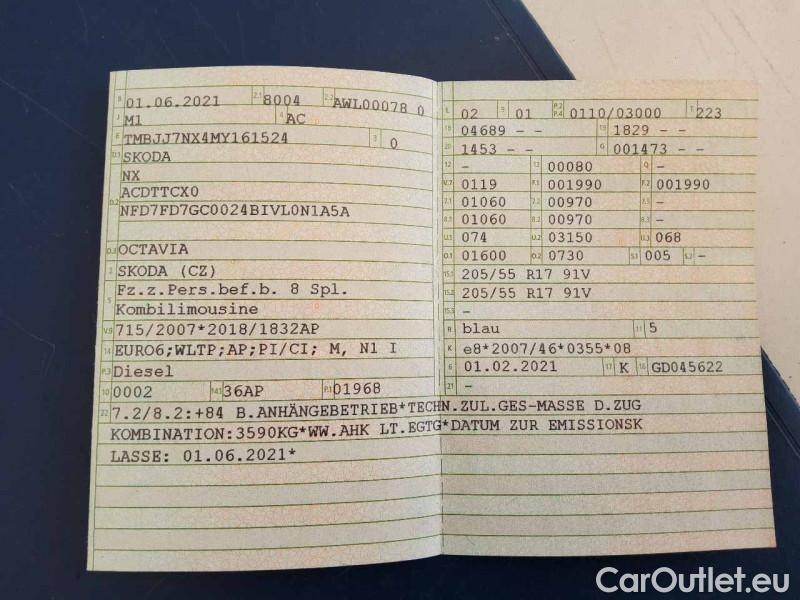 B 01.06.2021 2.1 8004 2.2 AWL00078 0
J M1 4 AC
E TMBJJ7NX4MY161524 3 0
D.1 SKODA
NX
D.2 ACDTTCX0
NFD7FD7GC0024BIVL0N1A5A
D.3 OCTAVIA
2 SKODA (CZ)
5 Fz.z.Pers.bef.b. 8 Spl.
Kombilimousine
V.9 715/2007*2018/1832AP
14 EURO6;WLTP;AP;PI/CI; M, N1 I
P.3 Diesel
10 0002 14.1 36AP P.1 01968
L 02 9 01 P.2 P.4 0110/03000 T 223
18 04689 - - 19 1829 - -
20 1453 - - G 001473 - -
12 - 13 00080 Q -
V.7 0119 F.1 001990 F.2 001990
7.1 01060 7.2 00970 7.3 -
8.1 01060 8.2 00970 8.3 -
U.1 074 U.2 03150 U.3 068
O.1 01600 O.2 0730 S.1 005 S.2 -
15.1 205/55 R17 91V
15.2 205/55 R17 91V
15.3 -
R blau 11 5
K e8*2007/46*0355*08
6 01.02.2021 17 K 16 GD045622
21 -
22 7.2/8.2:+84 B.ANHÄNGEBETRIEB*TECHN.ZUL.GES-MASSE D.ZUG
KOMBINATION:3590KG*WW.AHK LT.EGTG*DATUM ZUR EMISSIONSK
LASSE: 01.06.2021*
CarOutlet.eu